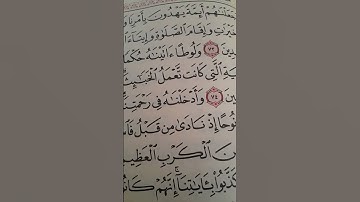 أَئِمَّةً يَهْدُونَ بِأَمْرِنَا
وَإِقَامَ ٱلصَّلَوٰةِ وَإِيتَآءَ
٧٣ وَلُوطًا ءَاتَيْنَٰهُ حُكْمًا
ٱلَّتِى كَانَت تَّعْمَلُ ٱلْخَبَٰٓئِثَ
٧٤ وَأَدْخَلْنَٰهُ فِى رَحْمَتِنَ
نُوحًا إِذْ نَادَىٰ مِن قَبْلُ فَٱسْ
ٱلْكَرْبِ ٱلْعَظِي
كَذَّبُوا۟ بِـَٔايَٰتِنَآ ۚ إِنَّهُمْ كَانُ